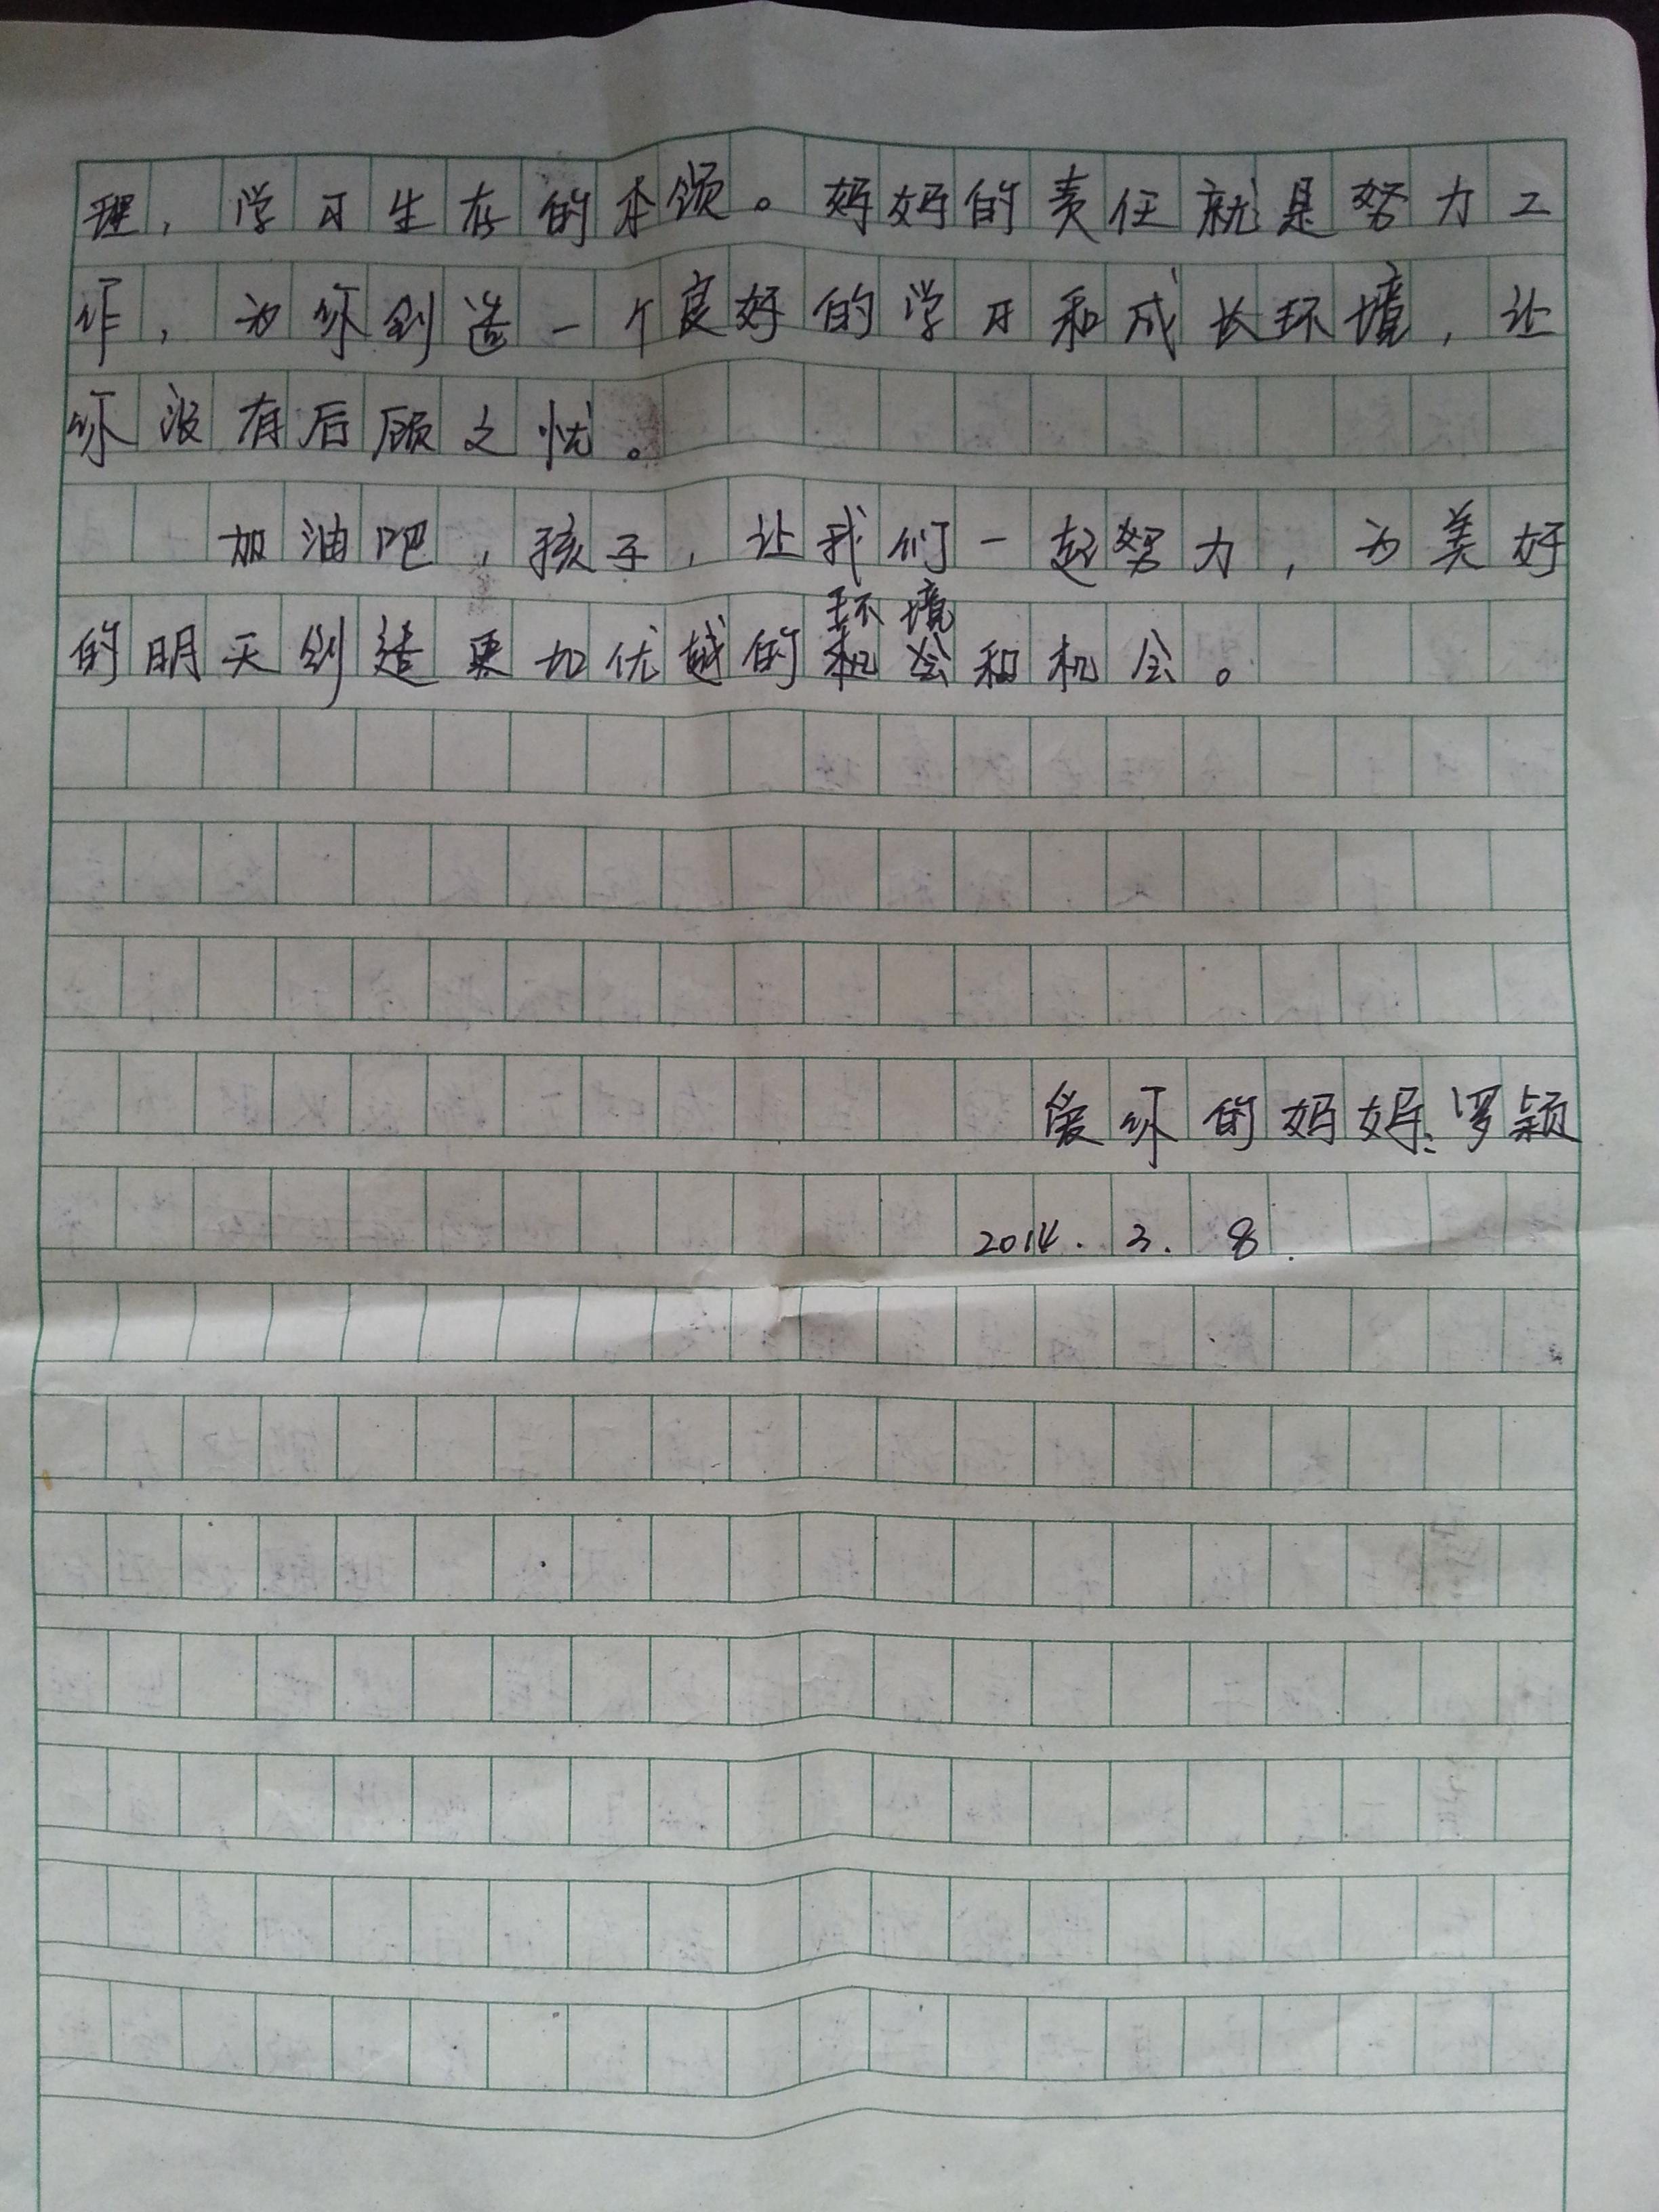 理，学习生存的本领。妈妈的责任就是努力工
作，为你创造一个良好的学习和成长环境，让
你没有后顾之忧。
加油吧，孩子，让我们一起努力，为美好
环境
的明天创造更加优越的机会和机会。
爱你的妈妈：罗颖
2014.3.8.